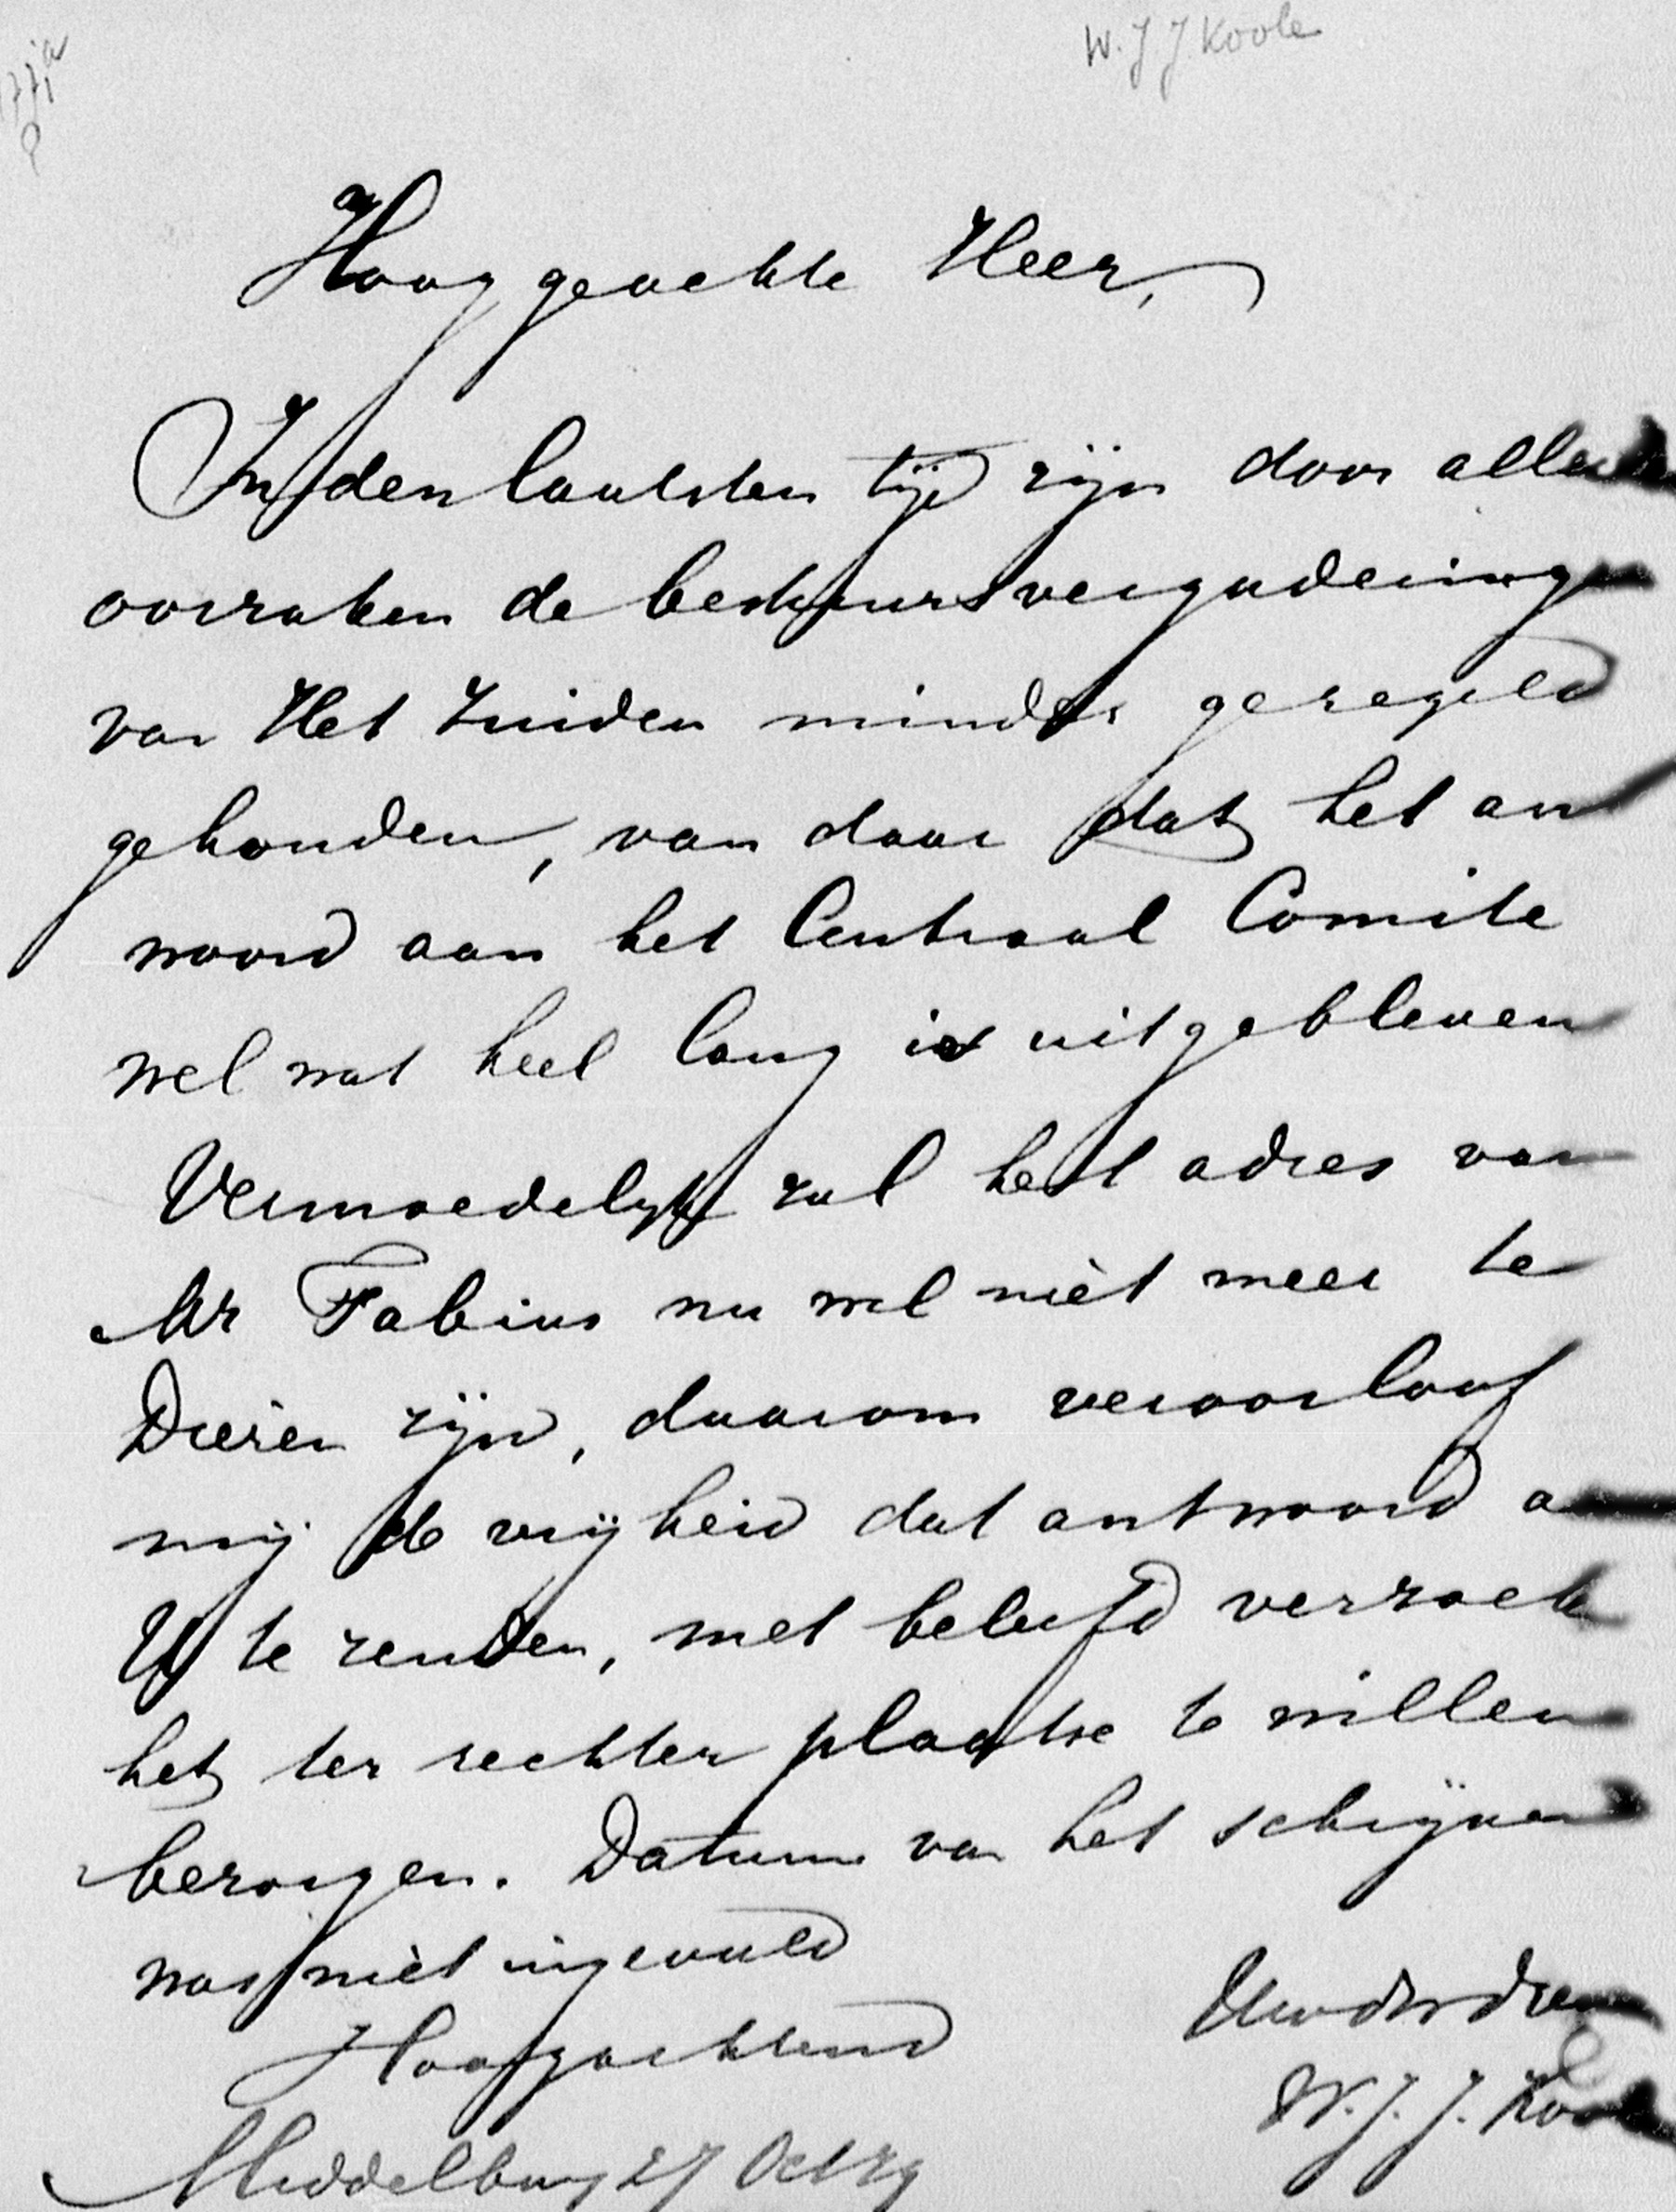 W. J J. Koole
Hooggeachte Heer,
In den laatsten tijd zijn door allerlei
oorzaken de bestuursvergaderingen
van Het Zuiden minder geregeld
gehouden, van daar dat het ant
woord aan het Centraal Comite
wel wat heel lang is uitgebleven
Vermoedelyk zal het adres van
Mr Fabius nu wel niet meer te
Dieren zijn, daarom veroorloof
mij de vrijheid dat antwoord a
U te zenden, met beleefd verzoek
het ter rechter plaatse te willen
bezorgen. Datum van het schrijven
was niet ingevuld
Hoogachtend
Uwdwdien
W. J. J. Koole
Middelburg 27 Oct 79